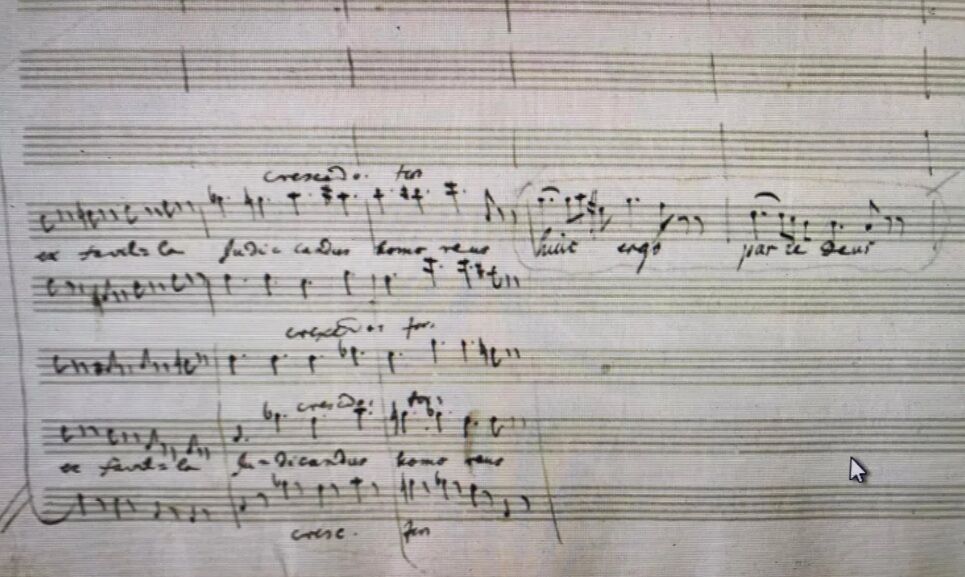 crescendo: for
ex favil=la Judicandus homo reus huic ergo parce Deus
crescendo: for:
cresc: for:
ex favil=la Ju=dicandus homo reus
cresc. for